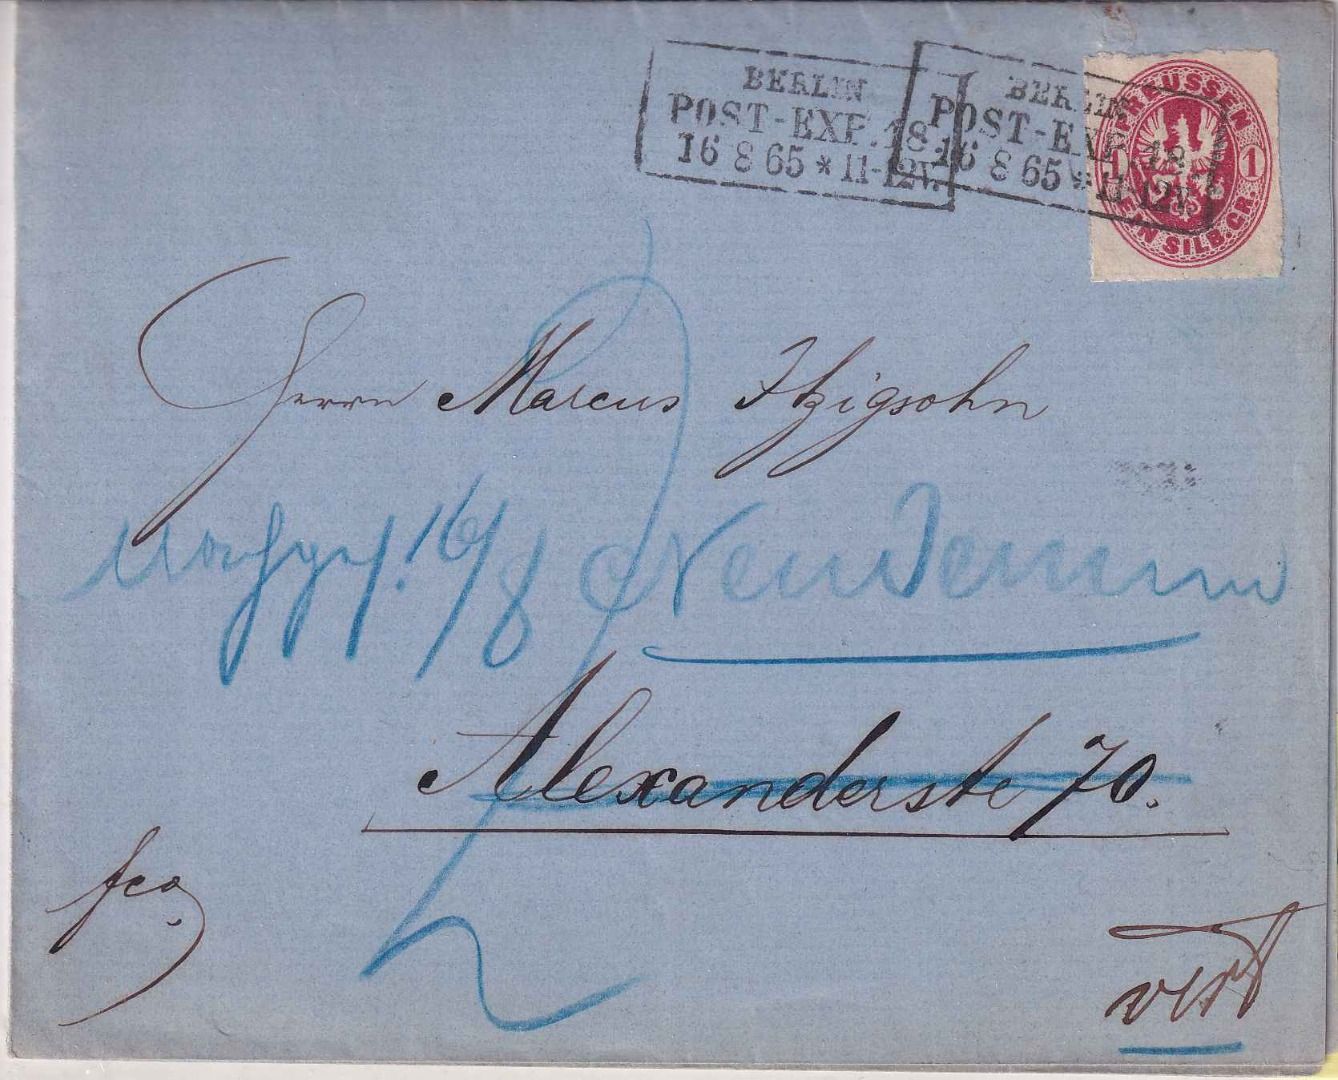 BERLIN
POST-EXP. 18
16 8 65 * 11-12V.
BERLIN
POST-EXP. 18
16 8 65 * 11-12V.
PREUSSEN
1 1
EIN SILB. GR.
Herrn Marcus Itzigsohn
16/8 Neudamm
2
Alexanderste 70.
fco